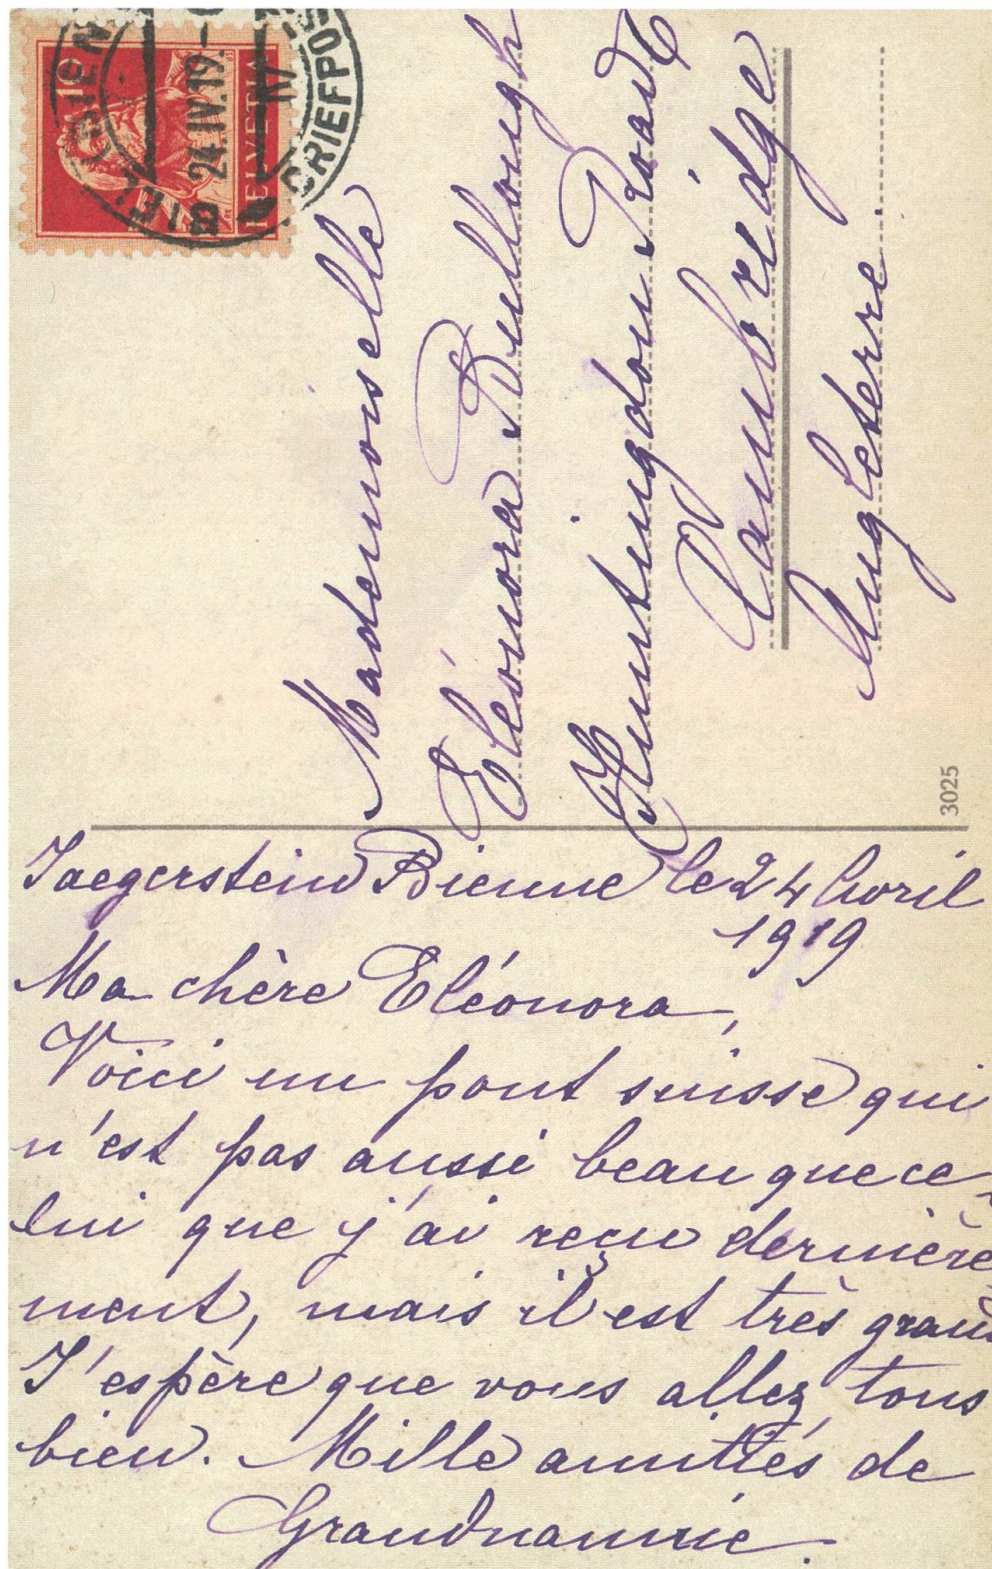 BIEL (BIENNE)
24.IV.19.-
BRIEFPOS
10
HELVETIA
Mademoiselle
Eléonora Bullough
6 Huntingdon Road
Cambridge
Angleterre.
3025
Jaegerstein Bienne le 24 Avril
1919
Ma chère Eléonora,
Voici un pont suisse qui
n'est pas aussi beau que ce-
lui que j'ai reçu dernière-
ment, mais il est très grand
J'espère que vous allez tous
bien. Mille amitiés de